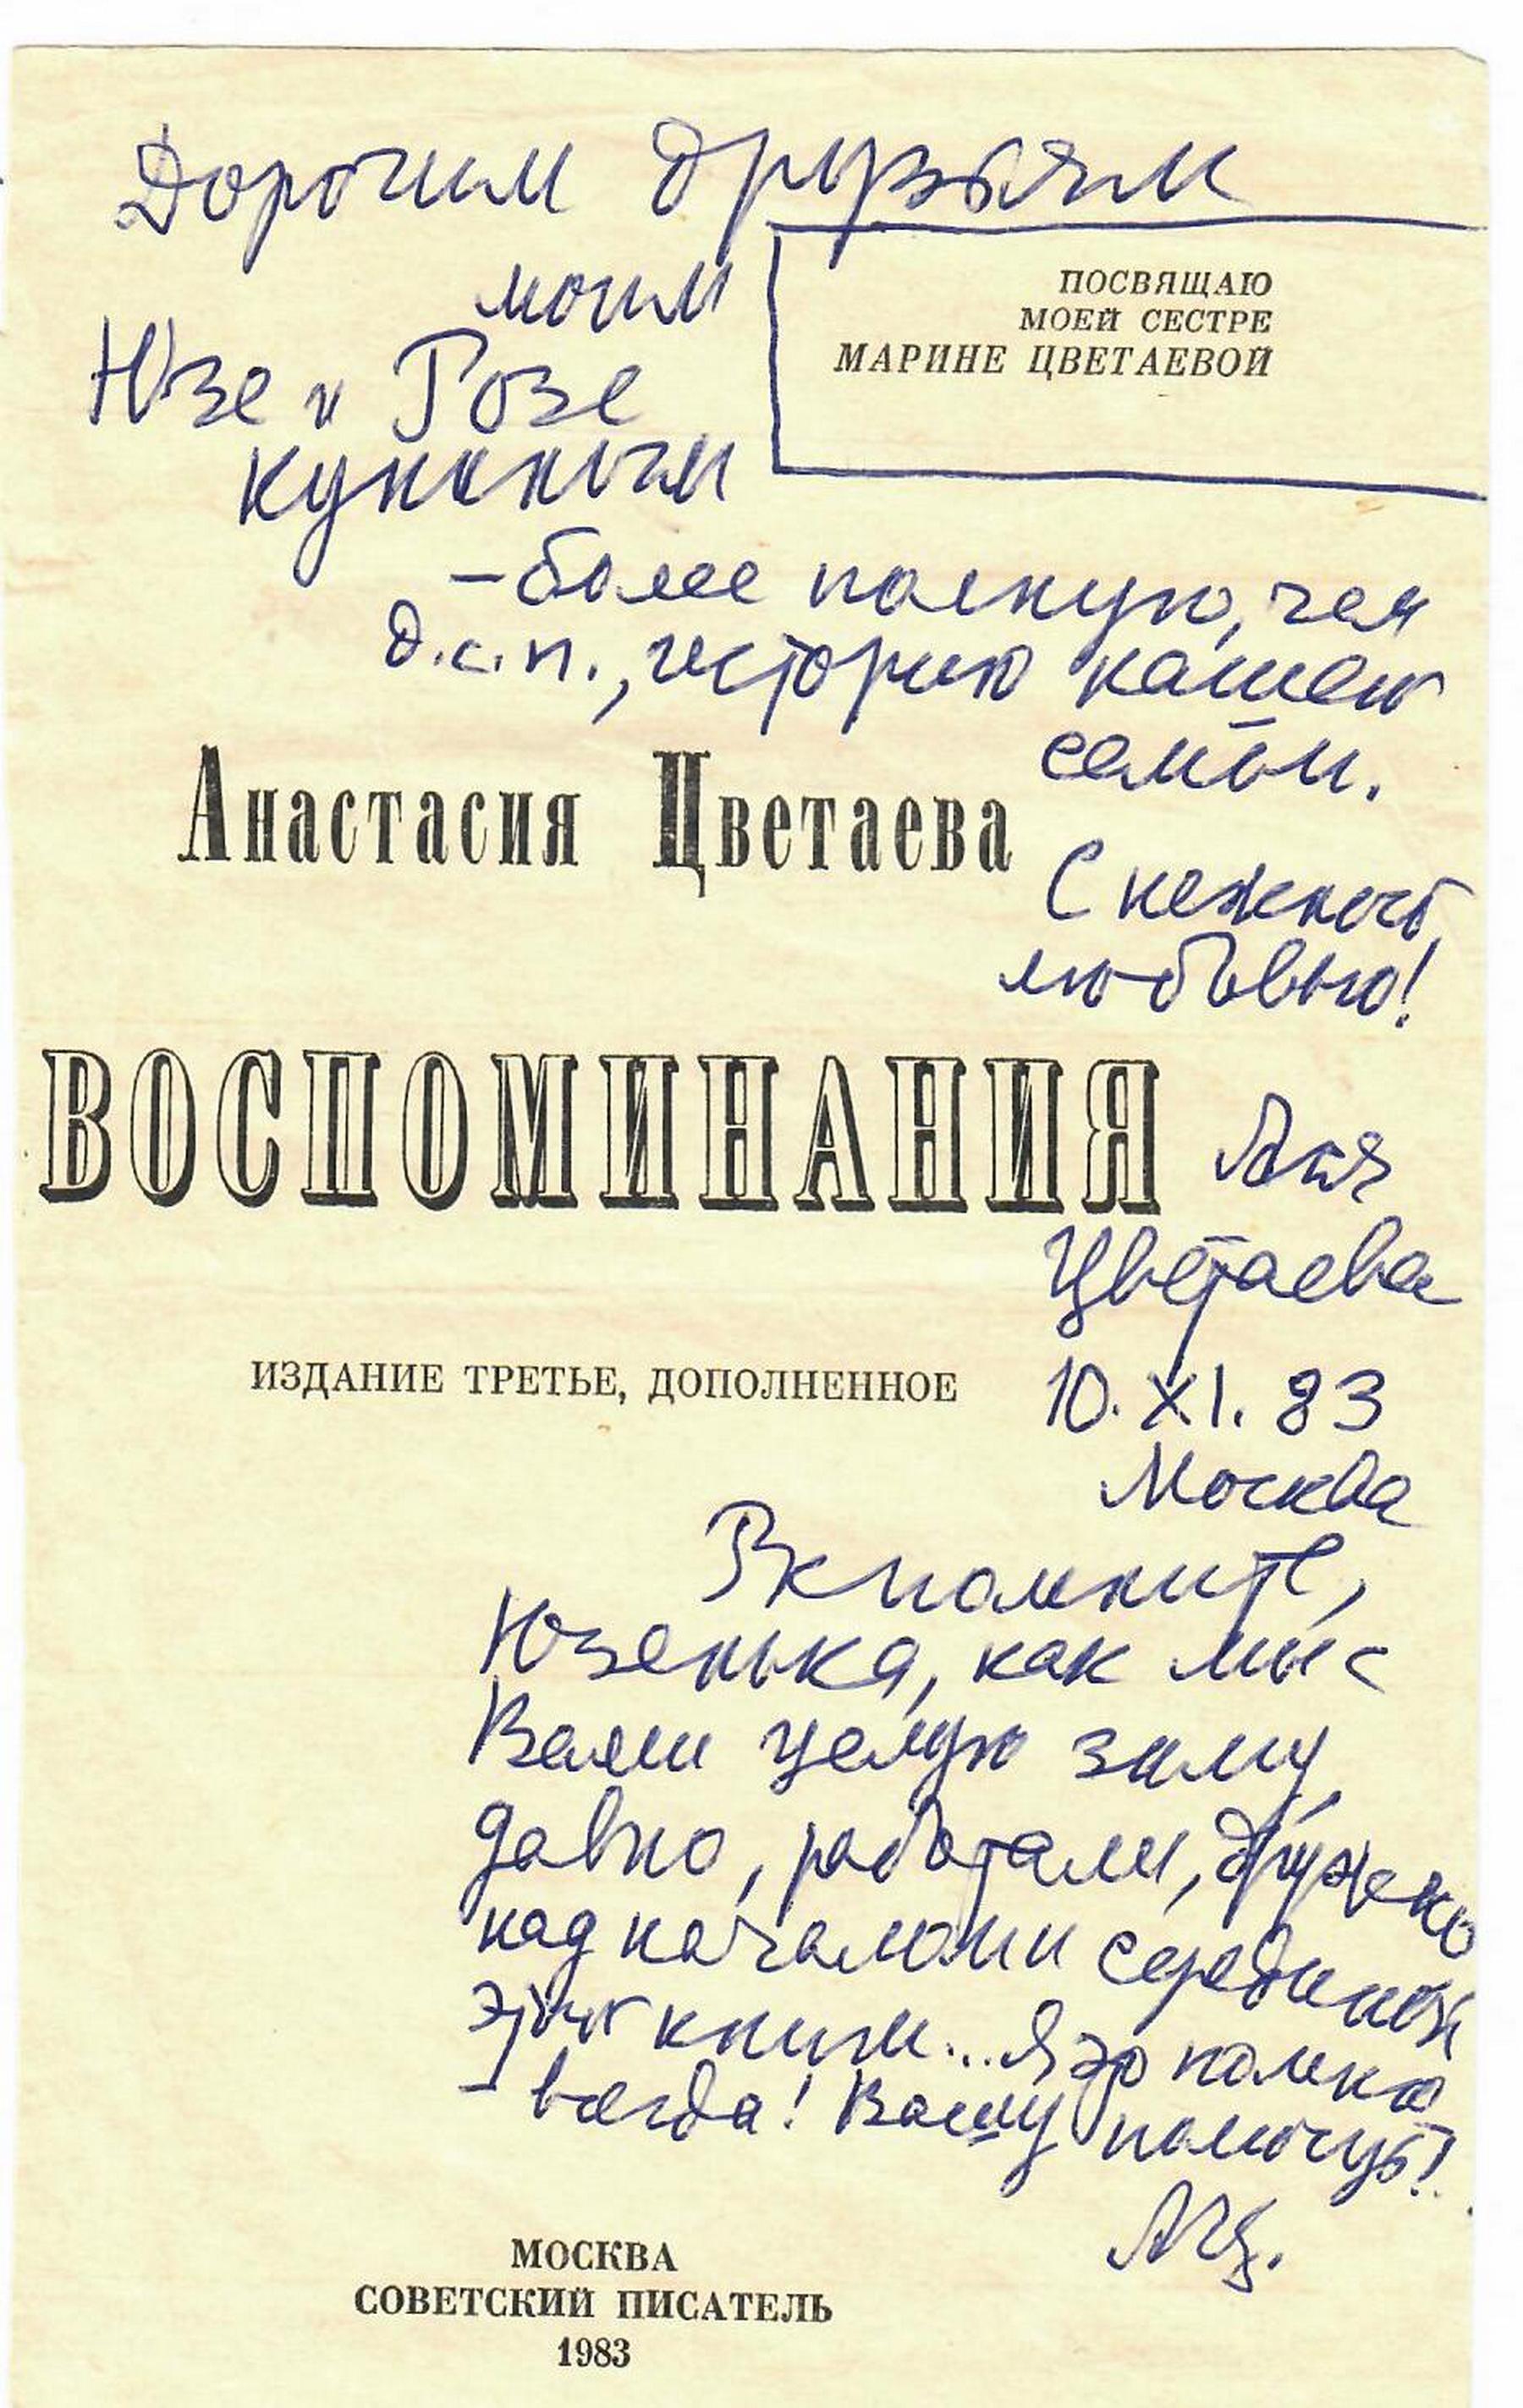 Дорогим друзьям
моим
Юзе и Розе
Куниным
ПОСВЯЩАЮ
МОЕЙ СЕСТРЕ
МАРИНЕ ЦВЕТАЕВОЙ
– более полную, чем
д.с.п., историю нашей
семьи.
Анастасия Цветаева
С нежной
любовью!
ВОСПОМИНАНИЯ
Ася
Цветаева
ИЗДАНИЕ ТРЕТЬЕ, ДОПОЛНЕННОЕ
10. XI. 83
Москва
Вспомните,
Юзенька, как мы с
Вами целую зиму,
давно, работали, дружно
над началом и серединой
этой книги... Я это помню
– всегда! Вашу помощь!
АЦ.
МОСКВА
СОВЕТСКИЙ ПИСАТЕЛЬ
1983